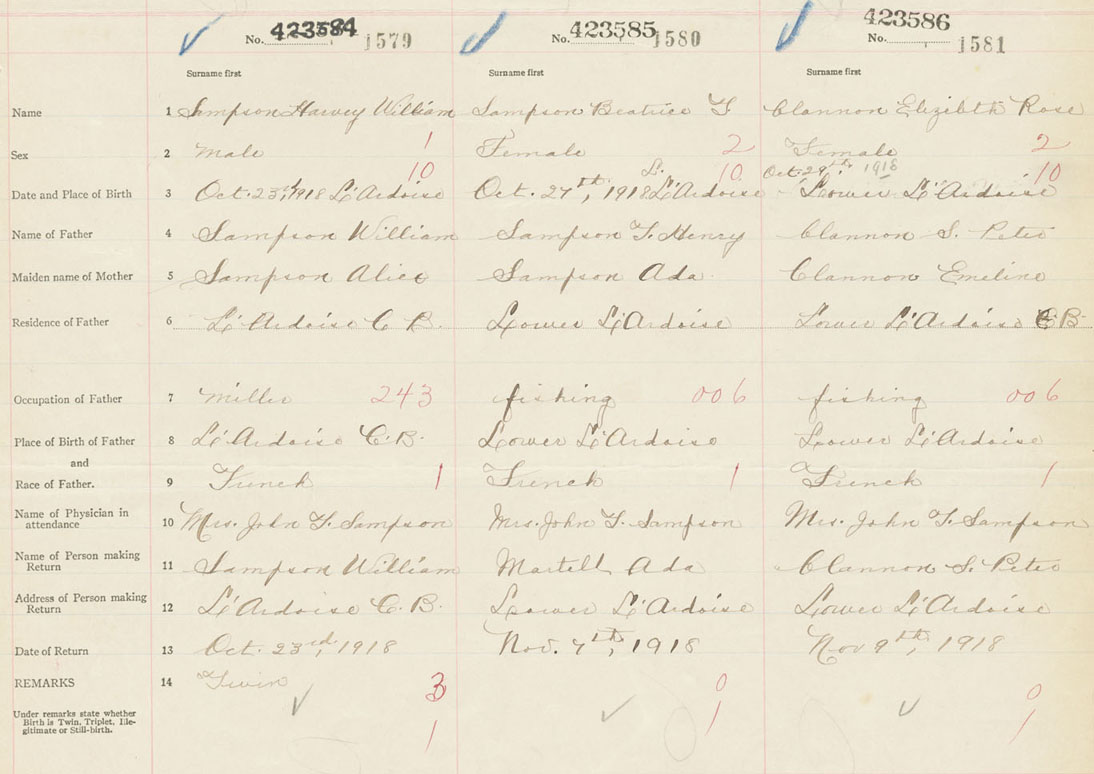 No. 423584 1579 No. 423585 1580 No. 423586 1581
Surname first Surname first Surname first
Name 1 Sampson Harvey William Sampson Beatrice Clannon Elizibth Rose
Sex 2 Male 1 Female 2 Female 2
10 L. 10 Oct. 29th, 1918 10
Date and Place of Birth 3 Oct. 23rd, 1918 L'Ardoise Oct. 27th, 1918 L'Ardoise Lower L'Ardoise
Name of Father 4 Sampson William Sampson Henry Clannon S. Peter
Maiden name of Mother 5 Sampson Alice Sampson Ada Clannon Emeline
Residence of Father 6 L'Ardoise C. B. Lower L'Ardoise Lower L'Ardoise C. B.
Occupation of Father 7 Miller 243 fishing 006 fishing 006
Place of Birth of Father 8 L'Ardoise C. B. Lower L'Ardoise Lower L'Ardoise
and
Race of Father. 9 French 1 French 1 French 1
Name of Physician in attendance 10 Mrs. John Sampson Mrs. John Sampson Mrs. John Sampson
Name of Person making Return 11 Sampson William Martell Ada Clannon S. Peter
Address of Person making Return 12 L'Ardoise C. B. Lower L'Ardoise Lower L'Ardoise
Date of Return 13 Oct. 23rd, 1918 Nov. 7th, 1918 Nov 9th, 1918
REMARKS 14 Twin 3 0 0
Under remarks state whether
Birth is Twin, Triplet, Ille-
gitimate or Still-birth. 1 1 1